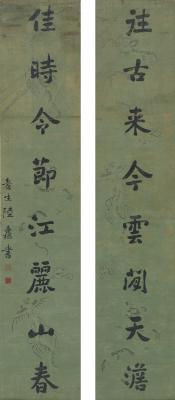 往古来今雲閒天澹
佳時令節江麗山春